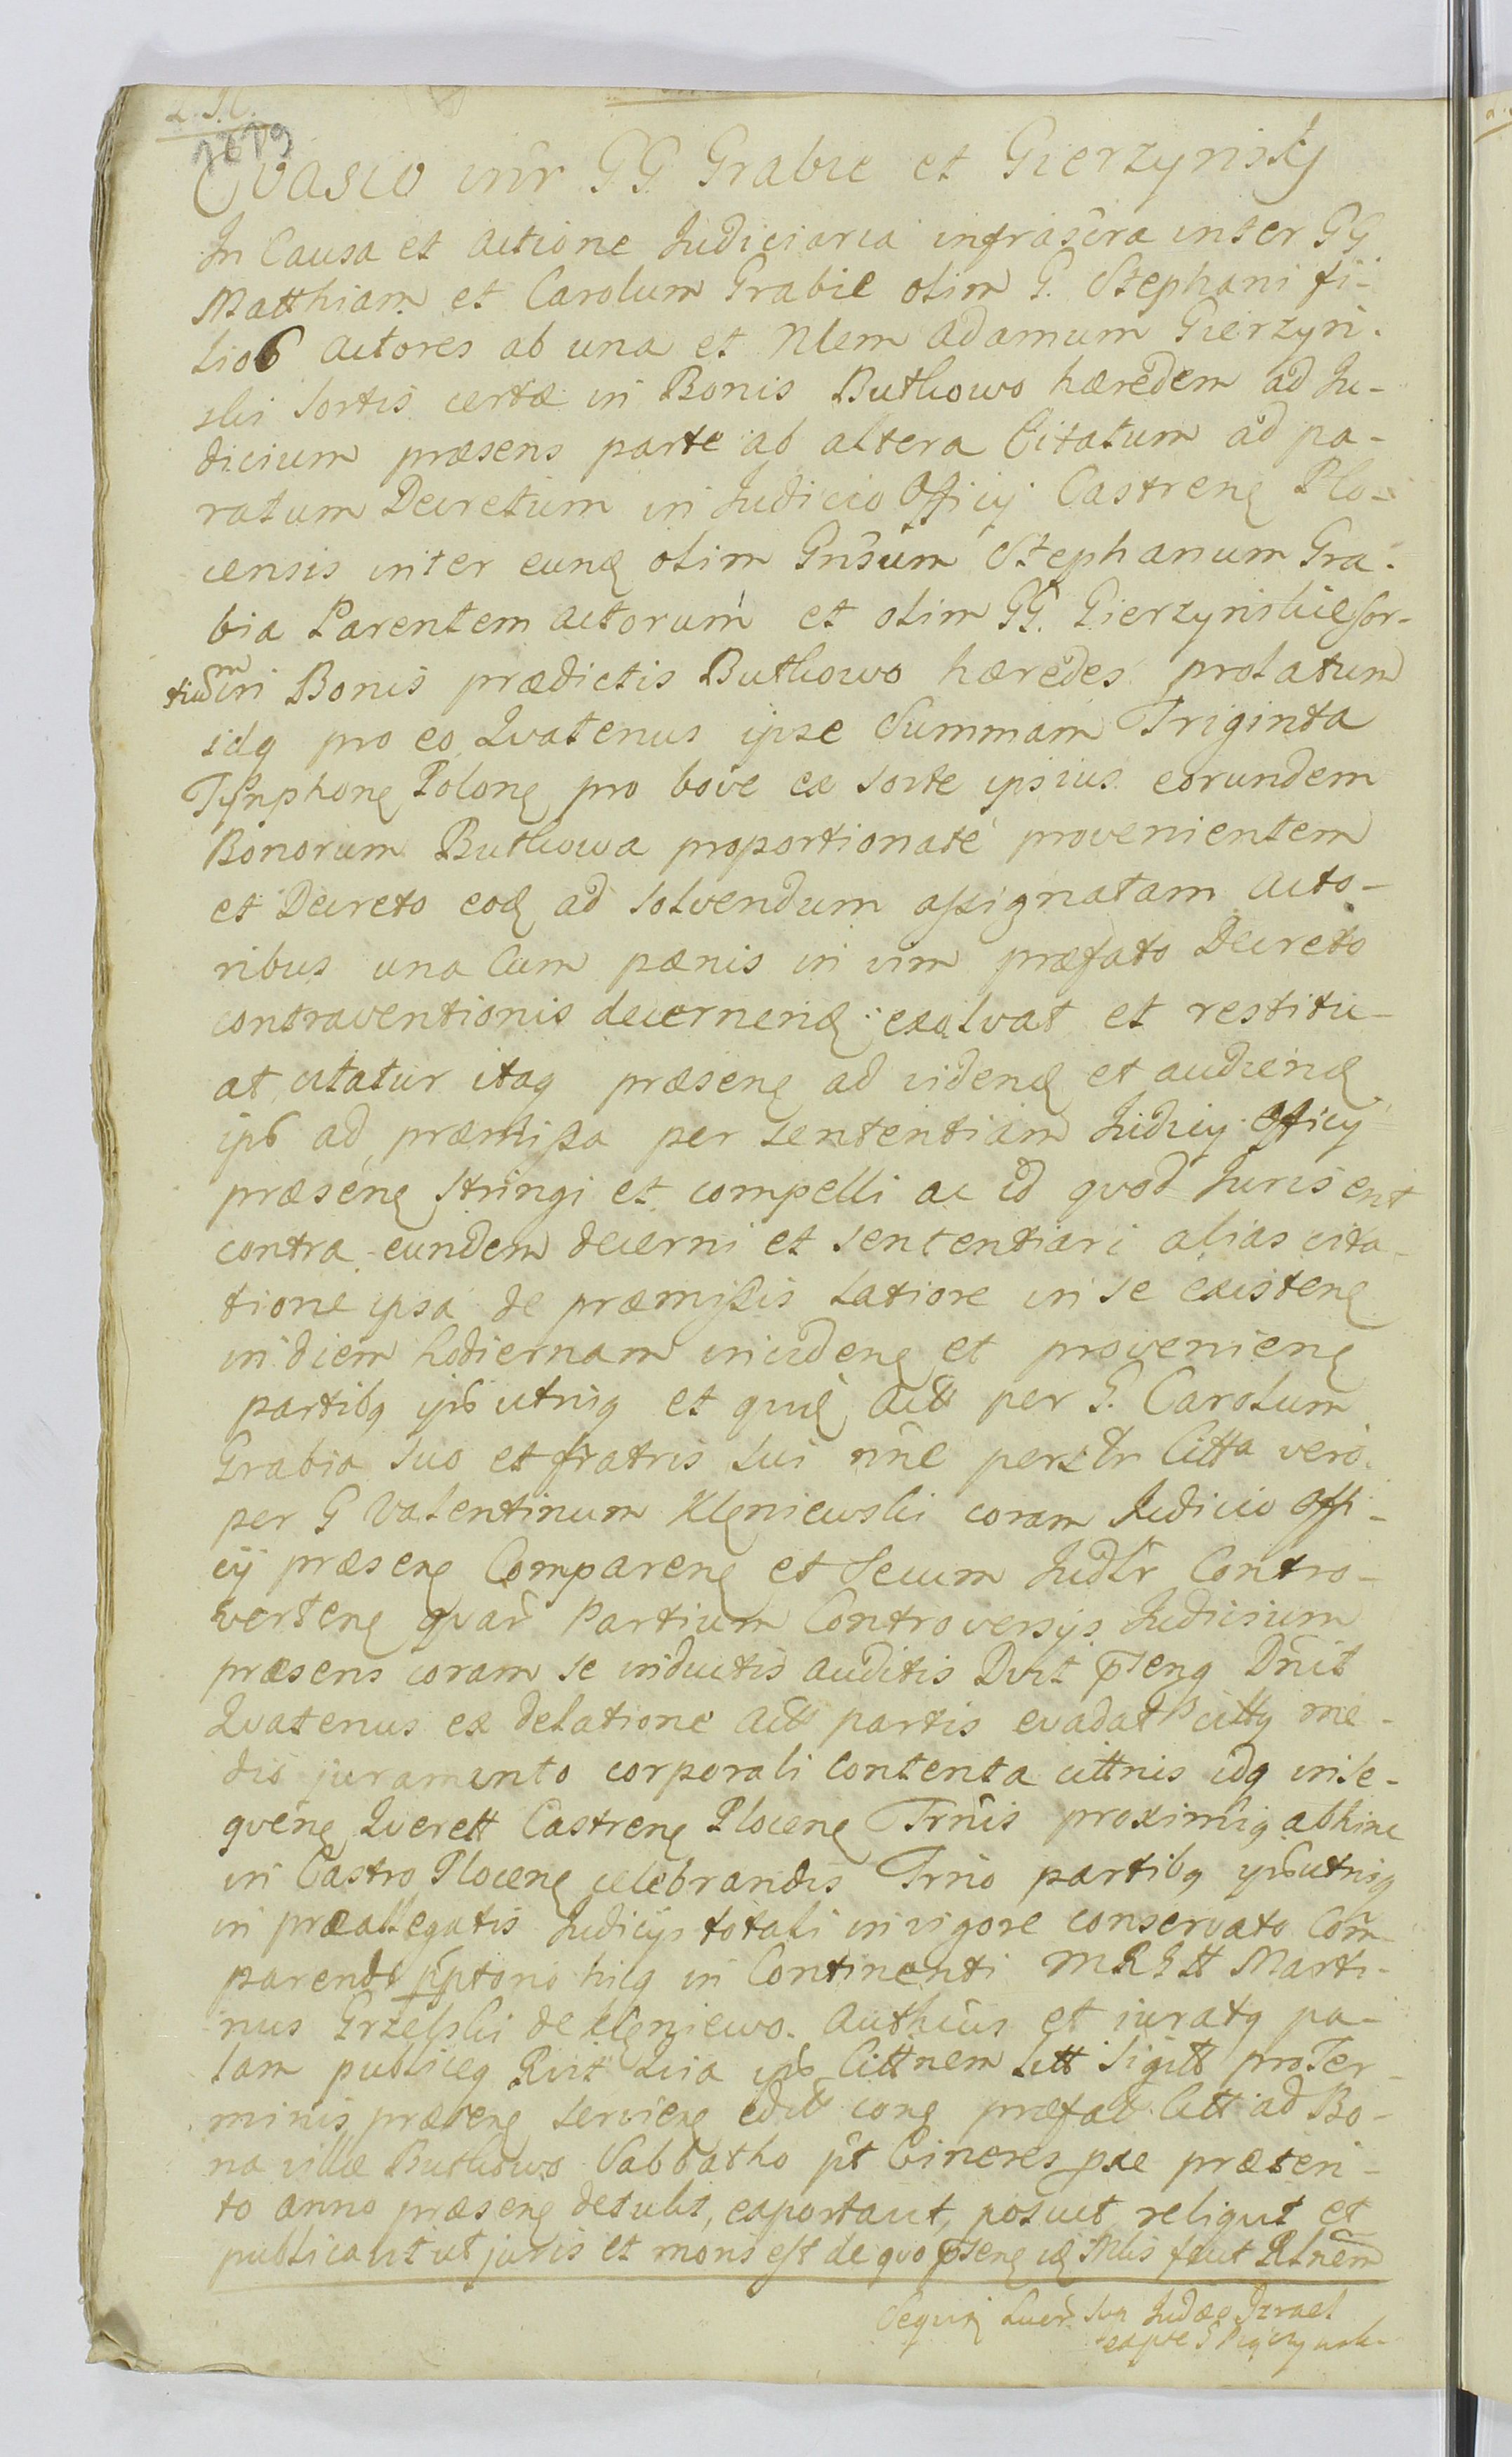 Evasio intr GG Grabie et Gierzynskj
In Causa et actione Judiciaria infrascra inter GG
Matthiam et Carolum Grabie olim G. Stephani fi-
lios actores ab una et Nlem Adamum Gierzyn-
ski sortis certæ in Bonis Buthowo hæredem ad Ju-
dicium præsens parte ab altera Citatum ad pa-
ratum Decretum in Judicio Officij Castrenę Plo-
censis inter eund olim Gnsum Stephanum Gra-
bia Parentem actorum et olim GG. Gierzynskie sor-
tium in Bonis prædictis Buthowo hæredes prolatum
idq pro eo Qvatenus ipse Summam Triginta
Tynphonę Polonę pro bove ex sorte ipsius eorundem
Bonorum Buthowa proportionate provenientem
et Decreto eod ad solvendum assignatam acto-
ribus una Cum pænis in vim præfato Decreto
contraventionis decernend exolvat et restitu-
at, citatur itaq præsenę ad videnđ et audienđ
ips ad præmissa per sententiam Judicij Officij
præsenę stringi et compelli ac id qvod Juris ent
contra eundem decerni et sententiari alias cita-
tione ipsa de præmissis latiore in se existenę
in diem hodiernam incidenę et provenienę
partibq ips utrisq et qvid Act per G. Carolum
Grabia suo et fratris sui nne persltr Citta vero
per G Valentinum Kleniewski coram Judicio Offi-
cij præsenę Comparenę et Secum Judlr Contro-
vertenę qvar Partium Controversijs Judicium
præsens coram se inductis auditis Dvit pseng Dnit
Qvatenus ex delatione Act partis evadat citty me-
dio juramento corporali contenta cittnis idq in se-
qvenę Qverell Castrenę Plocenę Trnis proximiq abhinc
in Castro Plocenę celebrandis Trno partibq ips utrisq
in præallegatis Judicijs totali in vigore conservato Com-
parendi pptorio hicq in Continenti MRGtt Marti-
nus Grzelski de Kleniewo Authcus et juratq pa-
lam publiceq Rvit Quia ips Cittnem Litt Sigitt pro Ter-
minis præsenę servienę edit conę præfat Citt ad Bo-
na villæ Buthowo Sabbatho pt Cineres pxe præteri-
to anno præsenę detulit, exportavit, posuit, reliqvit et
publicavit ut juris et moris est de qvo psenę iđ Mlis fecit Rlnem
Seqvit Quer Judæo Izrael